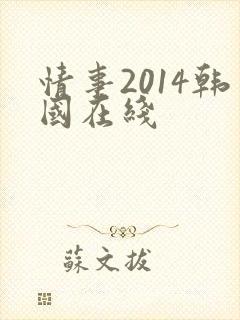 情事2014韩
國在綫
蘇文拔